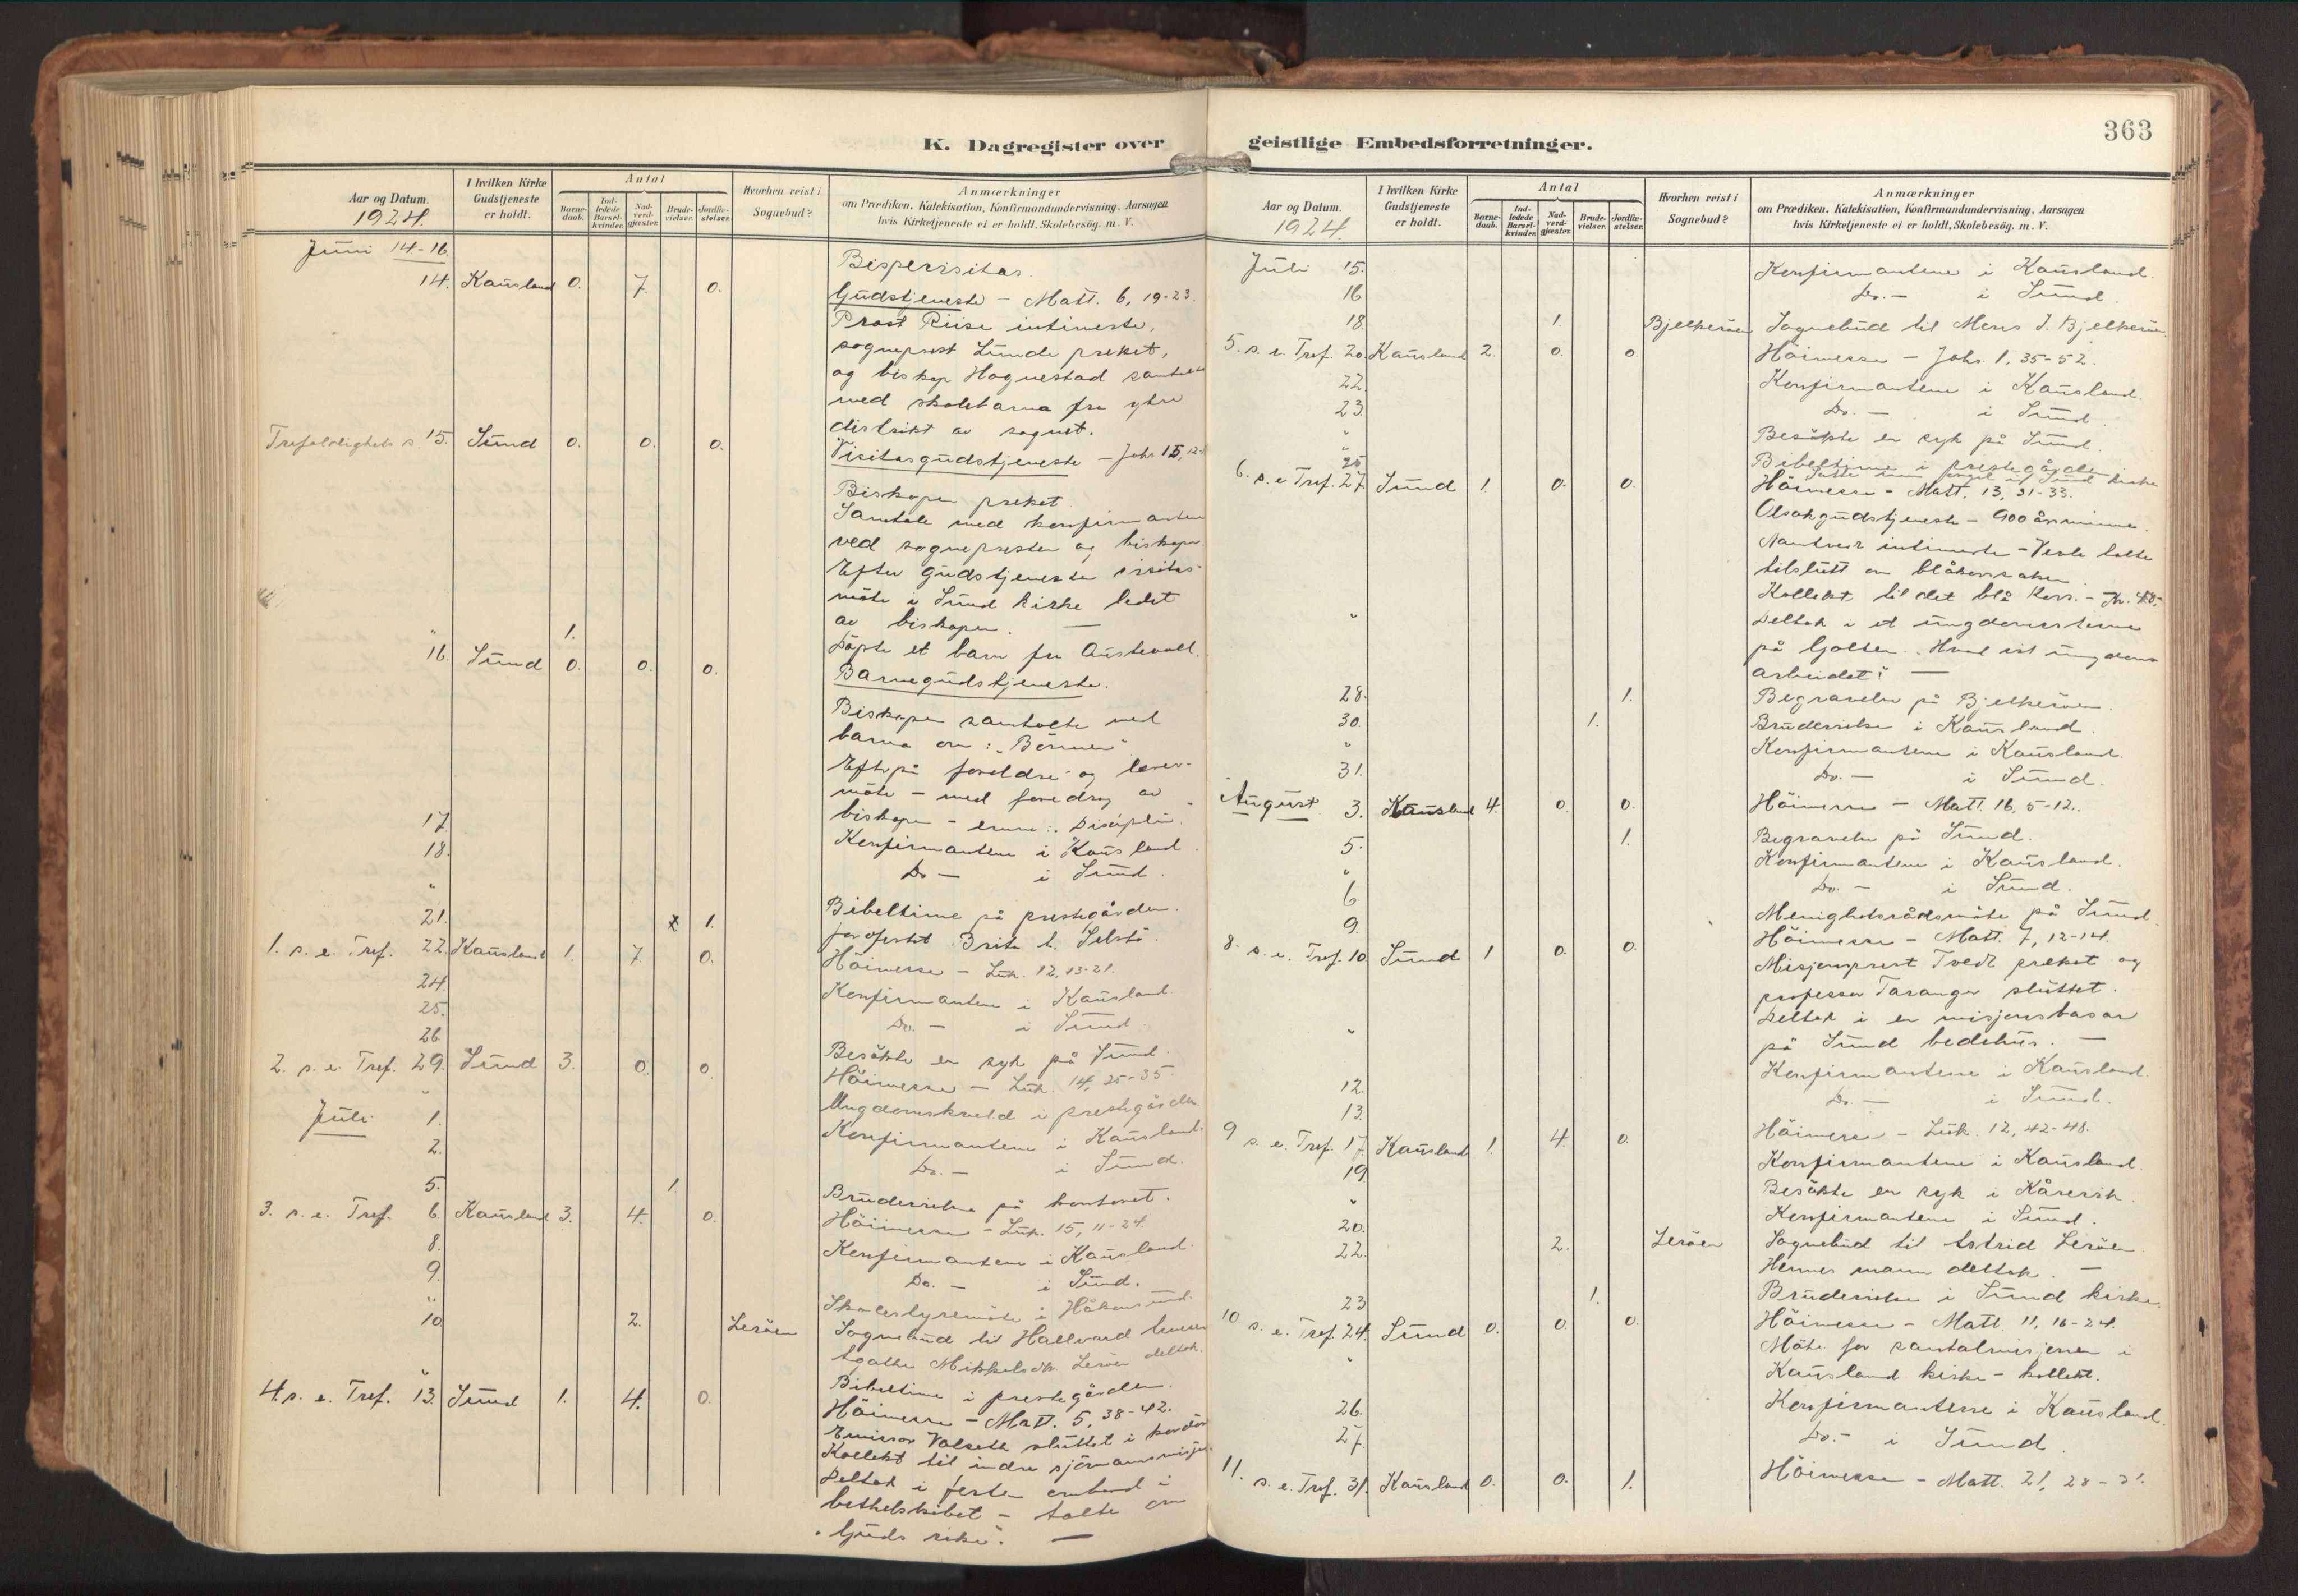 K. Dagregister over
Aar og Datum.
1924.
I hvilken Kirke Gudstjeneste er holdt.
Antal
Barne-daab.
Ind-ledede Barsel-kvinder.
Nad-verd-gjester.
Brude-vielser.
Jordfæ-stelser.
Hvorhen reist i Sognebud?
Anmærkninger
om Prædiken, Katekisation, Konfirmandundervisning, Aarsagen
hvis Kirketjeneste ei er holdt, Skolebesög. m. V.
Juni 14-16. Bispevisitas.
14. Kausland 0. 7. 0. Gudstjeneste - Matt. 6, 19-23.
Prost Riise intimerte,
sogneprest Lunde preket,
og biskop Hognestad samtalte
med skolebarna fra ytre
distrikt av sognet.
Trefoldighets s. 15. Sund 0. 0. 0. Visitasgudstjeneste - Joh. 15, 12-
Biskopen preket.
Samtale med konfirmanten
ved sognepresten og biskopen
Efter gudstjenesten visitas-
möte i Sund kirke ledet
av biskopen. —
" 1. Döpte et barn fra Austevoll.
16. Sund 0. 0. 0. Barnegudstjeneste.
Biskopen samtalte med
barna om: "Bönnen"
Efterpå foreldre- og lærer-
möte - med foredrag av
biskopen - emne: Disciplin.
17. Konfirmantene i Kausland.
18. Do — i Sund.
" Bibeltime på prestegården.
21. x 1. Jordfestet Brita L. Selstö.
1. s. e. Tref. 22. Kausland 1. 7. 0. Höimesse - Luk. 12, 13-21.
24. Konfirmantene i Kausland.
25. Do. — i Sund.
26. Besökte en syk på Sund.
2. s. e. Tref. 29. Sund 3. 0. 0. Höimesse - Luk. 14, 25-35.
" Ungdomskveld i prestegården
Juli 1. Konfirmantene i Kausland.
2. Do. — i Sund.
5. 1. Brudevielse på kontoret.
3. s. e. Tref. 6. Kausland 3. 4. 0. Höimesse - Luk. 15, 11-24.
8. Konfirmantene i Kausland.
9. Do. — i Sund.
" Skolestyremöte i Håkonsund.
10. 2. Leröen Sognebud til Hallvard
Agathe Mikkelsdtr. Leröen deltok.
" Bibeltime i prestegården.
4. s. e. Tref. 13. Sund 1. 4. 0. Höimesse - Matt. 5, 38-42.
Emissær Valseth sluttet i kordör
Kollekt til indre sjömannsmisjon
Deltok i festen ombord i
bethelskibet - talte om
"Guds rike". —
geistlige Embedsforretninger.
363
Aar og Datum.
1924.
I hvilken Kirke Gudstjeneste er holdt.
Antal
Barne-daab.
Ind-ledede Barsel-kvinder.
Nad-verd-gjester.
Brude-vielser.
Jordfæ-stelser.
Hvorhen reist i Sognebud?
Anmærkninger
om Prædiken, Katekisation, Konfirmandundervisning, Aarsagen
hvis Kirketjeneste ei er holdt, Skolebesög. m. V.
Juli 15. Konfirmantene i Kausland.
16 Do. — i Sund.
18. 1. Bjelkeröen Sognebud til Mons J. Bjelkeröen
5. s. e. Tref. 20. Kausland 2. 0. 0 Höimesse - Joh. 1, 35-52.
22. Konfirmantene i Kausland.
23. Do. — i Sund.
" Besökte en syk på Sund.
25 Bibeltime i prestegården
6. s. e Tref. 27. Sund 1. 0. 0. Höimesse - Matt. 13, 31-33.
Olsokgudstjeneste - 900 årsminne.
Namtvedt intimerte - Vevle talte
tilslutt om blåkorssaken.
Kollekt til det blå Kors. - Kr. 48.
" Deltok i et ungdomsstevne
på Golten.
arbeidet? —
28. 1. Begravelse på Bjelkeröen.
30. 1. Brudevielse i Kausland.
" Konfirmantene i Kausland.
31. Do. — i Sund.
August 3. Kausland 4. 0. 0. Höimesse - Matt. 16, 5-12.
5. 1. Begravelse på Sund.
" Konfirmantene i Kausland.
6. Do. — i Sund.
9. Menighetsrådsmöte på Sund.
8. s. e. Tref. 10 Sund 1 0. 0. Höimesse - Matt. 7, 12-14.
Misjonsprest Tvedt preket og
professor Taranger sluttet.
" Deltok i en misjonsbasar
på Sund bedehus. —
12. Konfirmantene i Kausland.
13. Do. — i Sund.
9 s. e. Tref. 17. Kausland 1. 4. 0. Höimesse - Luk. 12, 42-48.
19. Konfirmantene i Kausland.
" Besökte en syk i Kårevik.
20. Konfirmantene i Sund.
22. 2. Leröen Sognebud til Astrid Leröen.
Hennes mann deltok. —
23 1. Brudevielse i Sund kirke.
10 s. e. Tref. 24. Sund 0. 0. 0. Höimesse - Matt. 11, 16-24.
" Möte for santalmisjonen i
Kausland kirke - kollekt.
26. Konfirmantene i Kausland.
27. Do. - i Sund.
11. s. e. Tref. 31. Kausland 0. 0. 1. Höimesse - Matt. 21, 28-31.